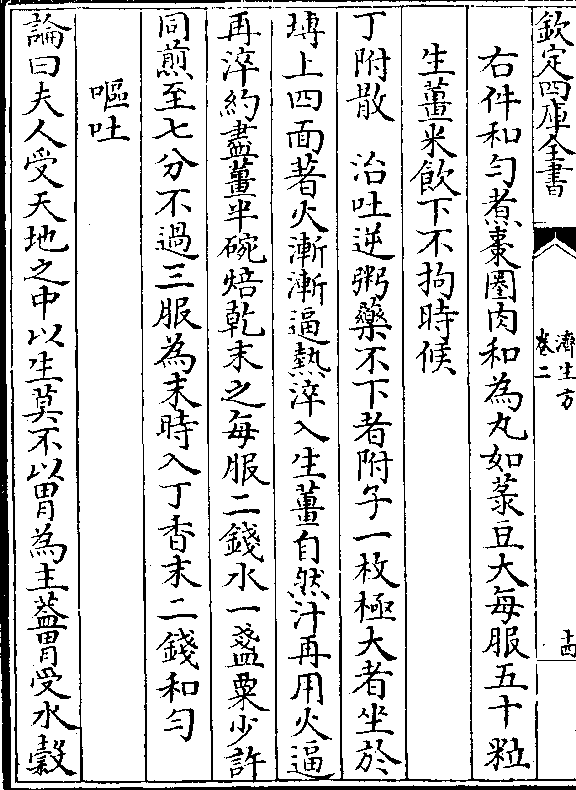 欽定四庫全書
濟生方
卷二
十四
右件和勻煮棗圈肉和為丸如菉豆大每服五十粒
生薑米飲下不拘時候
丁附散　治吐逆粥藥不下者附子一枚極大者坐於
塼上四面著火漸漸逼熱淬入生薑自然汁再用火逼
再淬約盡薑半碗焙乾末之每服二錢水一盞粟少許
同煎至七分不過三服為末時入丁香末二錢和勻
嘔吐
論曰夫人受天地之中以生莫不以胃為主葢胃受水穀